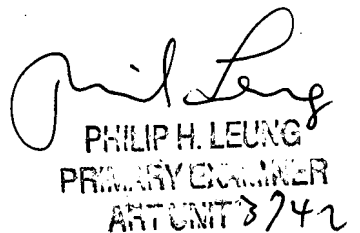 Phil Leung
PHILIP H. LEUNG
PRIMARY EXAMINER
ART UNIT 3742